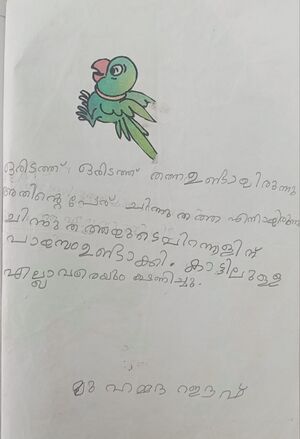 ഒരിടത്ത് ഒരിടത്ത് തത്ത ഉണ്ടായിരുന്നു
അതിന്റെ പേര് ചിന്നു തത്ത എന്നായിരുന്നു
ചിന്നു തത്തയുടെ പിറന്നാളിന്
പായസം ഉണ്ടാക്കി. കാട്ടിലുള്ള
എല്ലാവരെയും ക്ഷണിച്ചു.
മുഹമ്മദ്